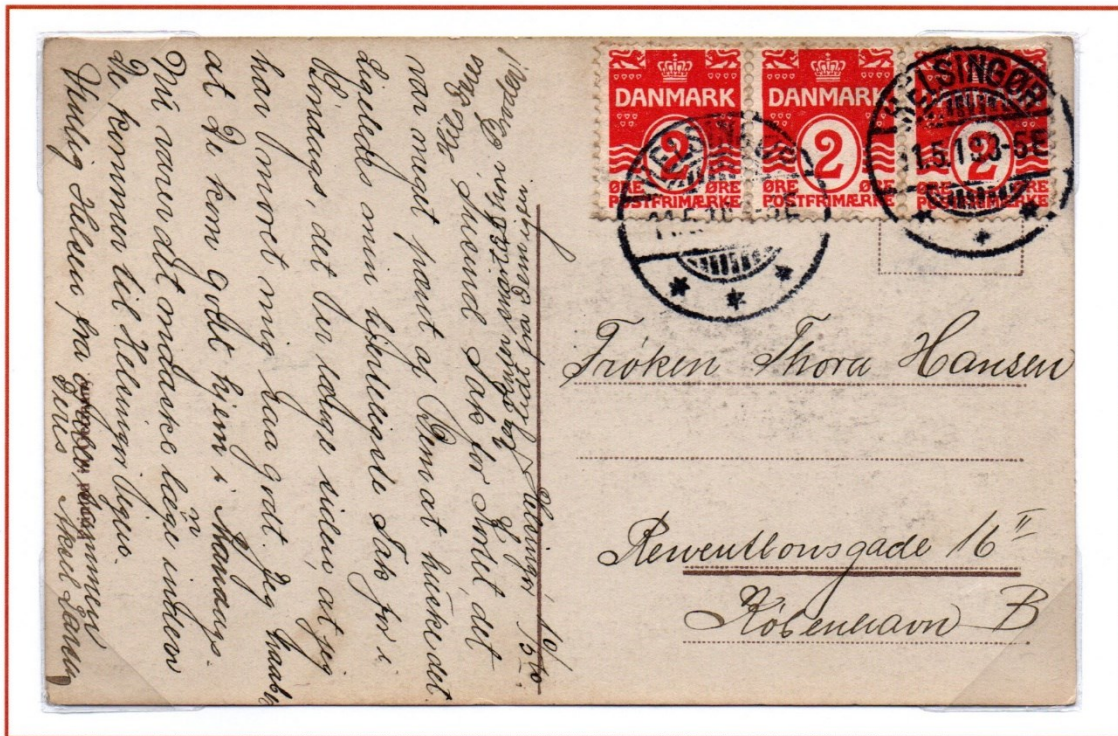 DANMARK
2
ØRE ØRE
POSTFRIMÆRKE
DANMARK
2
ØRE ØRE
POSTFRIMÆRKE
2
ØRE
POSTFRIMÆRKE
HELSINGØR
HELSINGØR
Frøken Thora Hansen
Reventlowsgade 16 II
København B
Helsingør
Tusind Tak for Kortet, det
var meget pænt af Dem at huske det.
Ligeledes min hjerteligste Tak for i
Søndags, det er længe siden, at jeg
har moret mig saa godt. Jeg haaber
at De kom godt hjem i Mandags.
Vil være alt maaske læge inden
De kommer til Helsingør igen.
Venlig Hilsen fra
Deres Aksel Larsen